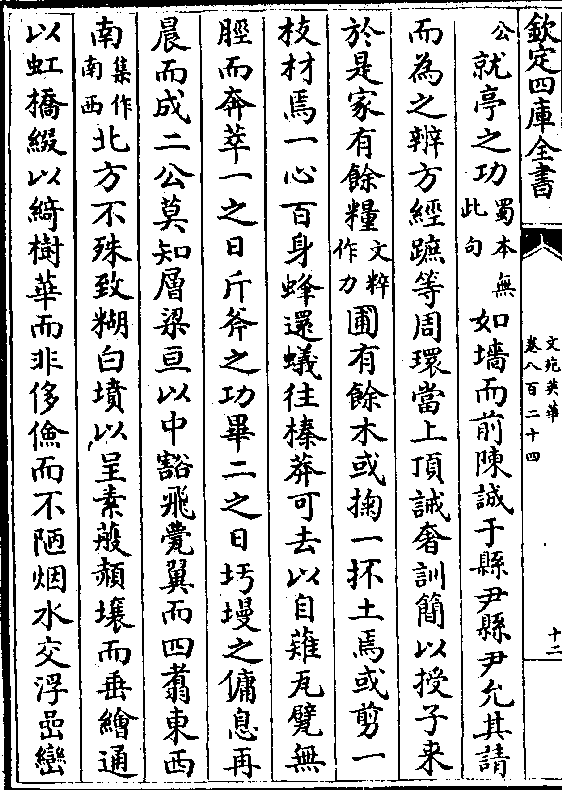 欽定四庫全書
文苑英華
卷八百二十四
十二
公就亭之功蜀本無此句如墻而前陳誠于縣尹縣尹允其請
而為之辨方經蹠等周環當上頂誡奢訓簡以授子来
於是家有餘糧文粹作力圃有餘木或掬一抔土焉或剪一
枝材焉一心百身蜂還蟻往榛莽可去以自雞瓦甓無
脛而奔萃一之日斤斧之功畢二之日圬墁之傭息再
晨而成二公莫知層梁亘以中豁飛甍翼而四翥東西
南集作南西北方不殊致糊白墳以呈素頳壤而垂繪通
以虹橋綴以綺樹華而非侈儉而不陋烟水交浮嵒巒